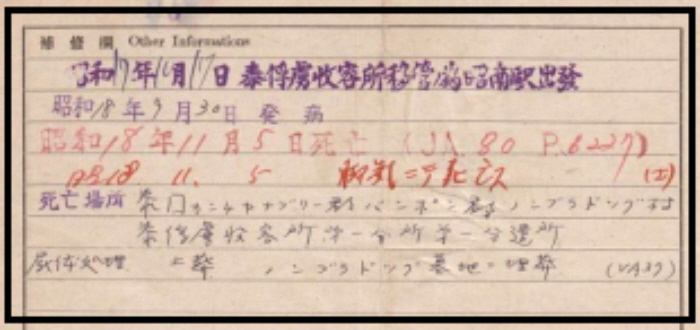 補修欄 Other Informations
昭和17年10月17日 泰俘虜收容所移管ノ為昭南駅出發
昭和18年9月30日 発病
昭和18年11月5日死亡 (JA. 80 P.6227)
昭18. 11. 5 脚気ニテ死亡 (エ)
死亡場所 泰国カンチャナブリー県バンポン郡ノンプラドック村
泰俘虜收容所第一分所第一分遣所
屍体処理 土葬 ノンプラドック墓地ニ埋葬 (VA37)